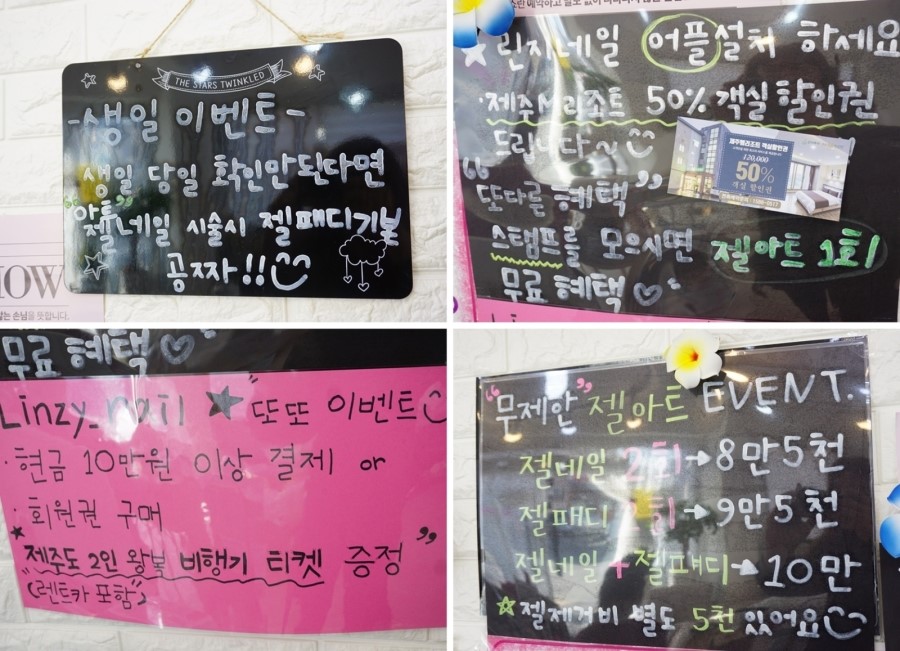 THE STARS TWINKLED
-생일 이벤트-
생일 당일 확인만된다면
"아트"
젤네일 시술시 젤패디기본
공짜!!
HOW
않는 손님을 뜻합니다.
린지네일 어플설치 하세요
·제주M리조트 50% 객실 할인권
드립니다~
"또다른 혜택"
120,000
50%
객실 할인권
스탬프를 모으시면 젤아트 1회
무료 혜택♡
무료 혜택♡
Linzy_nail ★ 또또 이벤트
·현금 10만원 이상 결제 or
·회원권 구매
★"제주도 2인 왕복 비행기 티켓 증정"
(렌트카 포함)
"무제한" 젤아트 EVENT.
젤네일 2회→8만5천
젤패디 2회→9만5천
젤네일+젤패디→10만
☆젤제거비 별도 5천 있어요